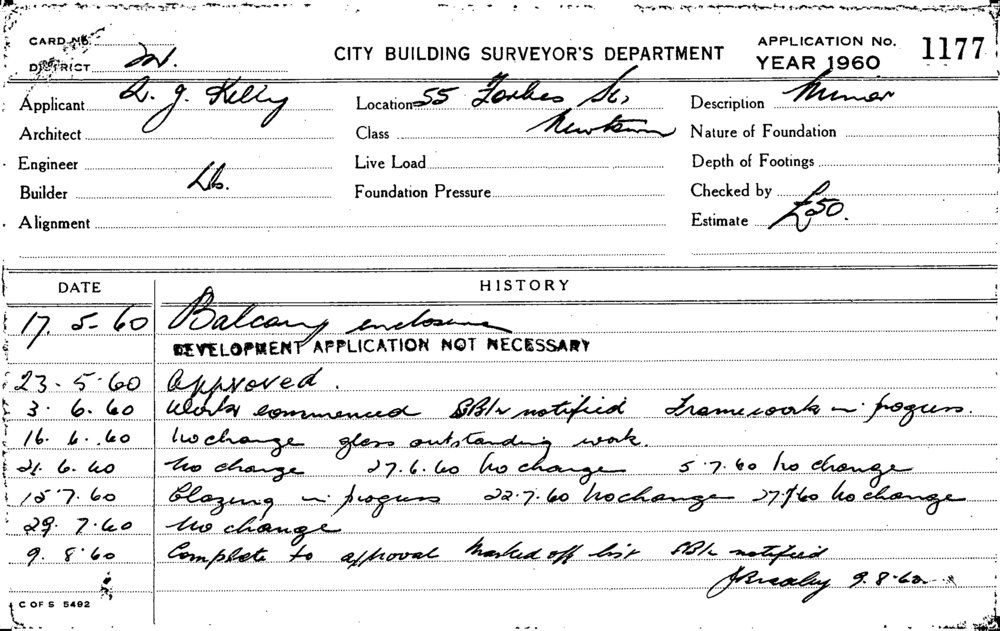 CARD No.
DISTRICT
CITY BUILDING SURVEYOR'S DEPARTMENT
APPLICATION No. 1177
YEAR 1960
Applicant J. Kelly Location 55 Forbes St, Description Minor
Architect Class Newtown Nature of Foundation
Engineer Live Load Depth of Footings
Builder Foundation Pressure Checked by
Alignment Estimate £50.
DATE HISTORY
17. 5-60 Balcony enclosure
DEVELOPMENT APPLICATION NOT NECESSARY
23. 5.60 Approved.
3. 6. 60 Work commenced notified Framework in progress.
16. 6. 60 No change glass outstanding work.
21. 6. 60 No change 27.6.60 No change 5.7.60 No change
15.7.60 Glazing in progress 22.7.60 No change 27.7.60 No change
29. 7.60 No change
9. 8.60 Complete to approval Marked off list notified
9.8.60
C OF S 5492